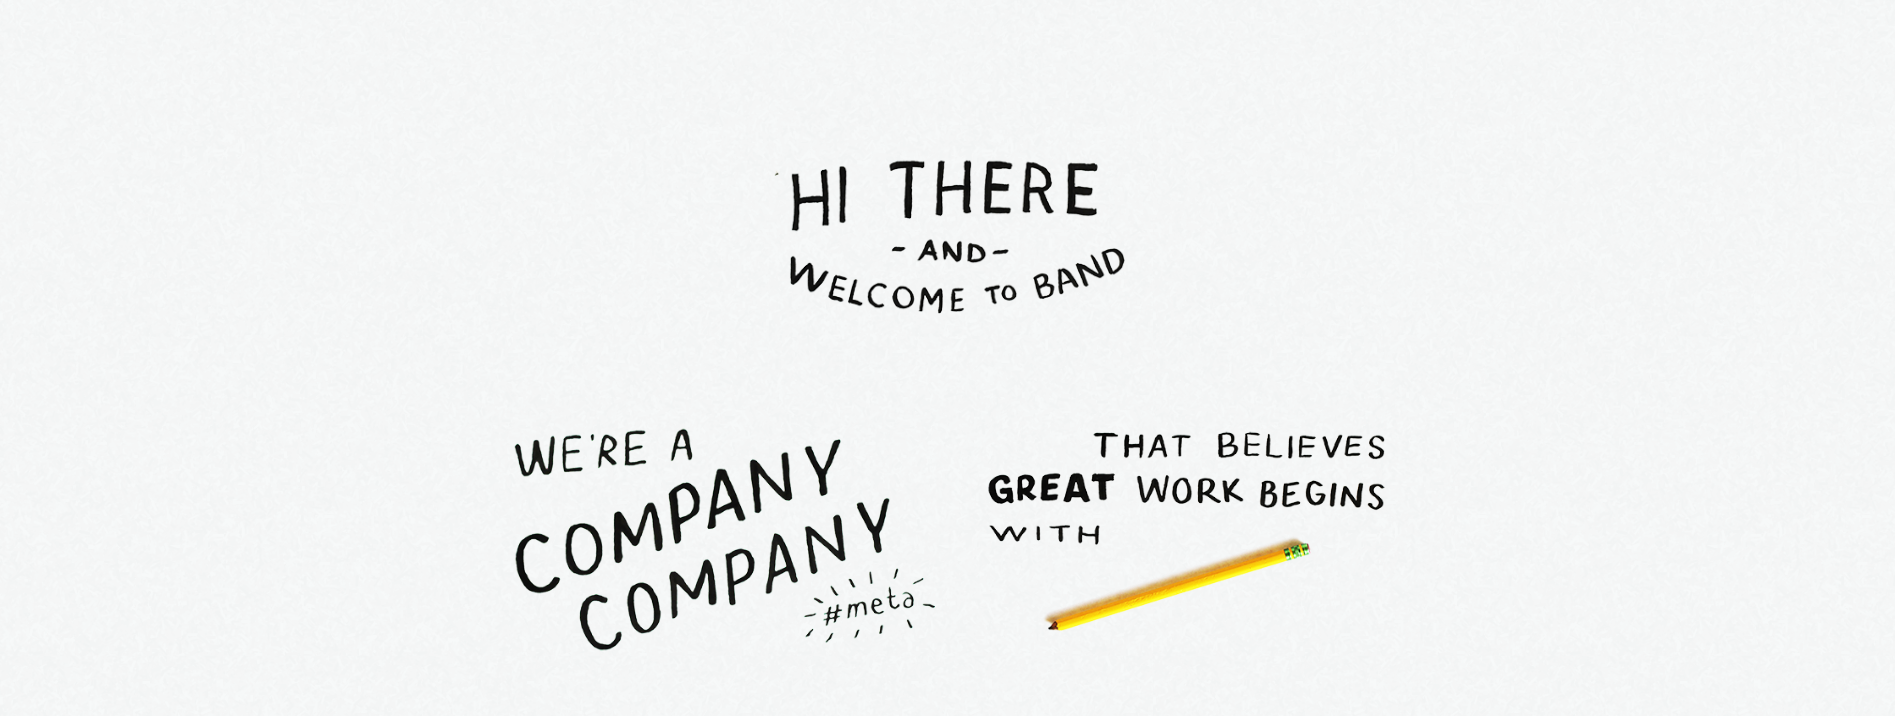 HI THERE
- AND -
WELCOME TO BAND
WE'RE A
COMPANY
COMPANY
#meta
THAT BELIEVES
GREAT WORK BEGINS
WITH